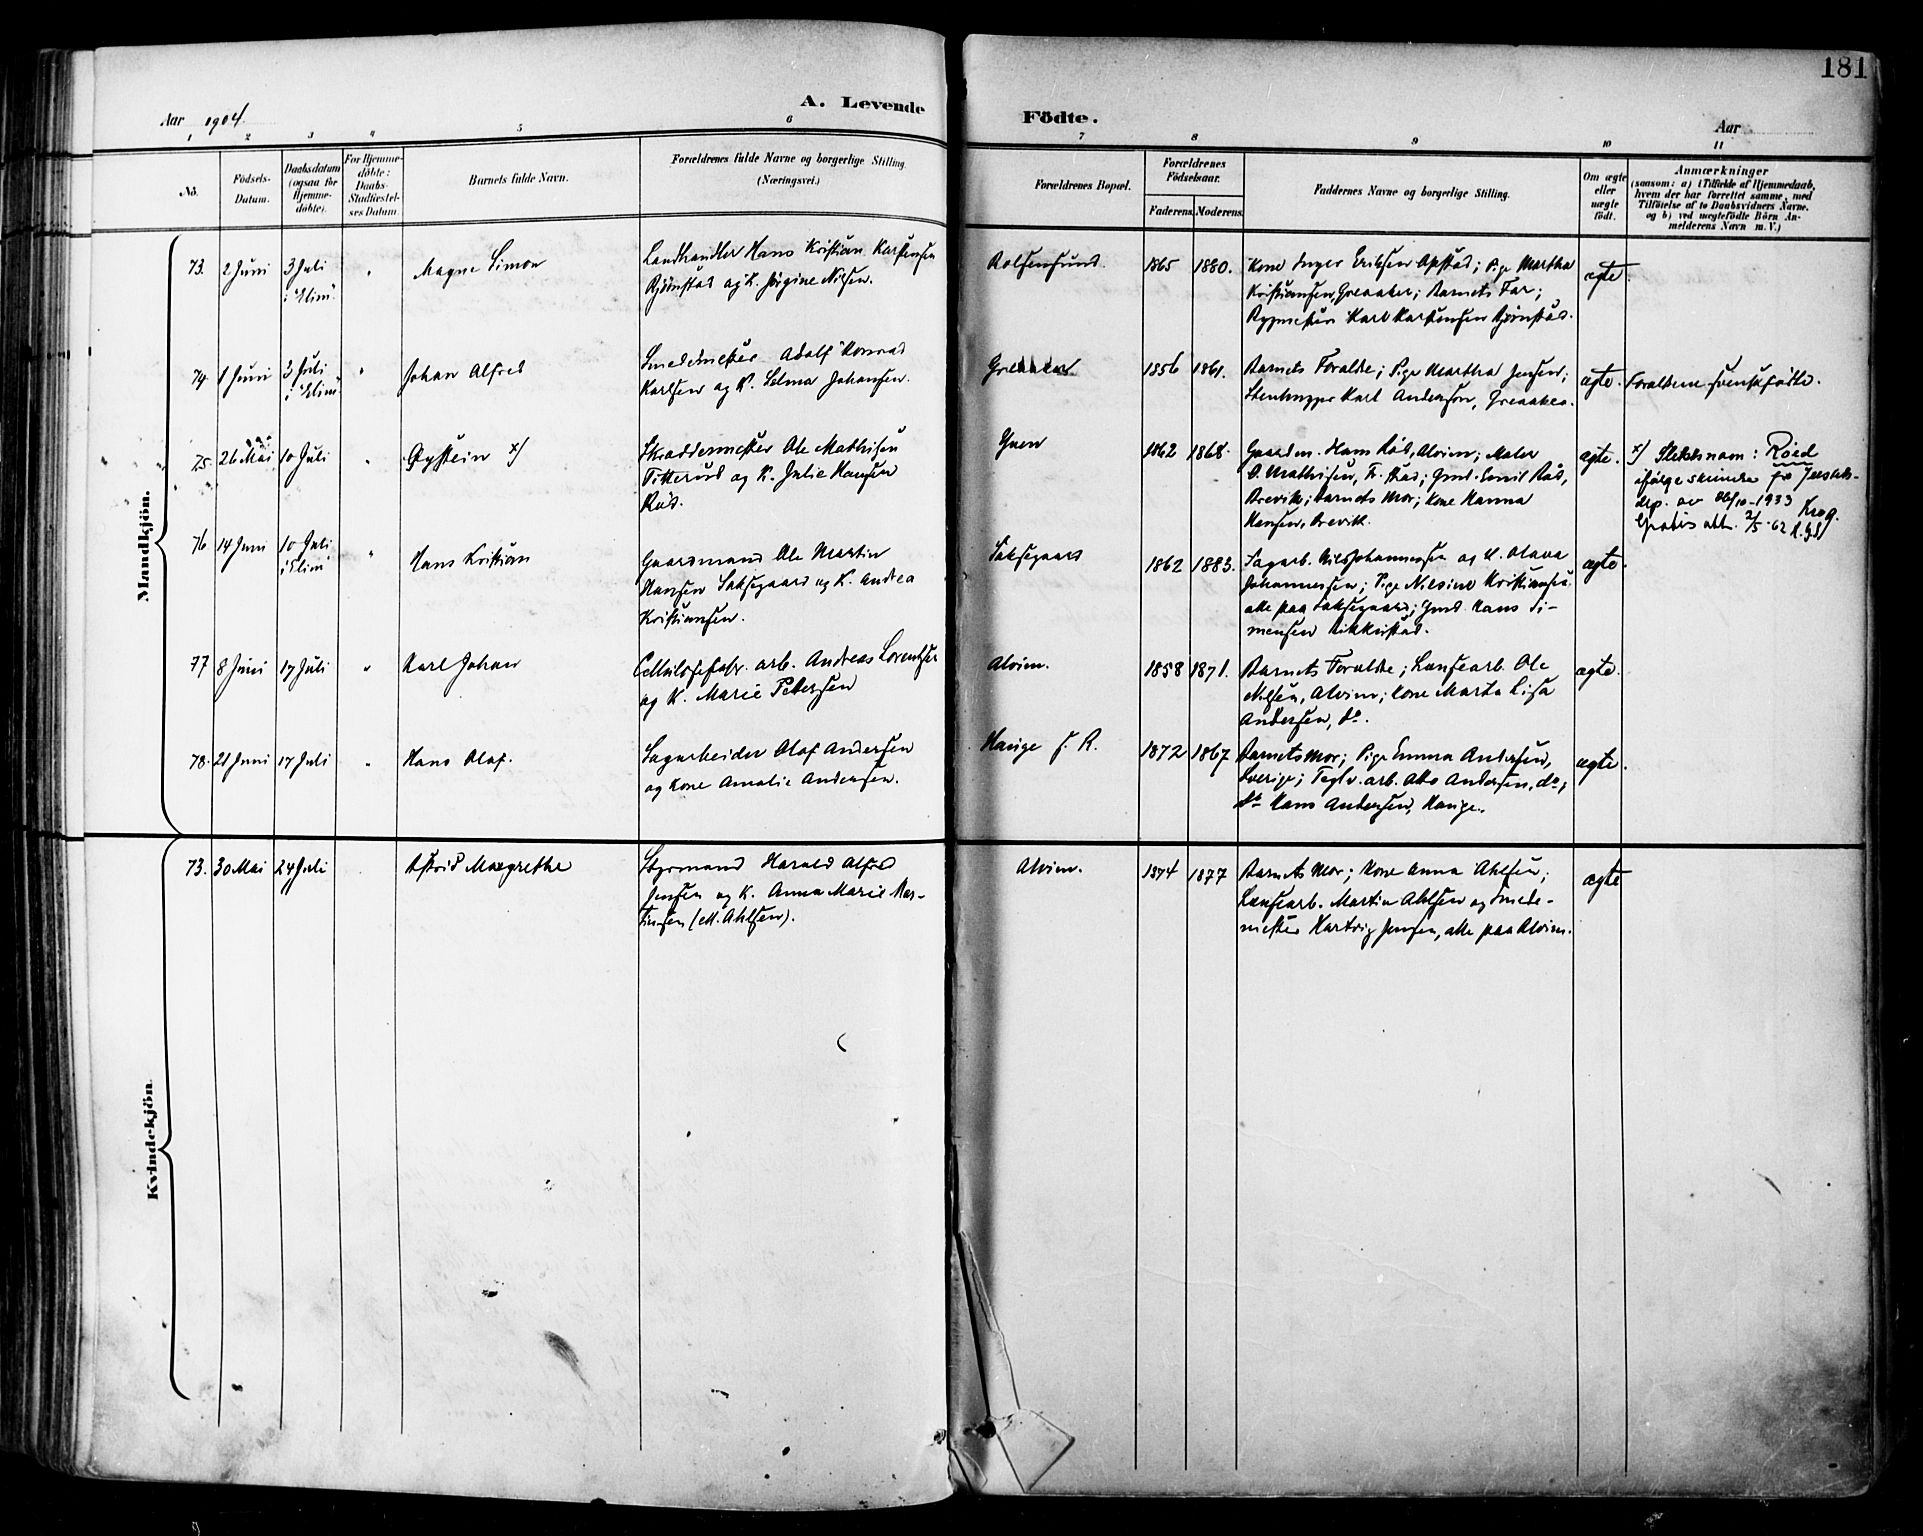 181
Aar 1904.
A. Levende
Födte.
Aar
1 2 3 4 5 6 7 8 9 10 11
No.
Födsels-
Datum.
Daabsdatum
(ogsaa for
Hjemme-
döbte).
For Hjemme-
döbte:
Daabs-
Stadfæstel-
ses Datum.
Barnets fulde Navn.
Forældrenes fulde Navne og borgerlige Stilling.
(Næringsvei.)
Forældrenes Bopæl.
Forældrenes
Födselsaar.
Faderens. Moderens.
Faddernes Navne og borgerlige Stilling.
Om ægte
eller
uægte
födt.
Anmærkninger
(saasom: a) i Tilfælde af Hjemmedaab,
hvem der har forrettet samme, med
Tilföielse af to Daabsvidners Navne,
og b) ved uægtefödte Börn An-
melderens Navn m. V.)
Mandkjön.
73. 2 Juni
3 Juli
i "Elim".
"
Magne Simon
Landhandler Hans Kristian Karstensen
Bjørnstad og K. Jørgine Nilsen.
Rolfsøsund.
1865 1880.
Kone Inger Eriksen Opstad; Pige Martha
Kristiansen, Greaaker; Barnets Far;
Bygmester Karl Karstensen Bjørnstad.
ægte.
74. 1 Juni
3 Juli
i "Elim"
"
Johan Alfred
Smedmester Adolf Konrad
Karlsen og K. Selma Johansen.
Greaaker
1856 1861.
Barnets Foræltre; Pige Martha Jensen;
Stenhugger Karl Anderson, Greaaker.
ægte.
Forældrene svenskfødte.
75. 26 Mai
10 Juli
"
Øystein x)
Skræddermester Ole Mathisen
Titterud og K. Julie Hansen
Rød.
1862 1868.
Gaardm. Hans Rød, Alvim; Maler
O. Mathisen, Fr. stad; Gmd. Emil Rød,
Brevik; Barnets Mor; Kone Hanna
Hansen, Brevik.
ægte.
x) Slektsnavn: Røed
ifølge skrivelse fra Justits-
dep. av 26/10-1933 Krog.
Gratis att. 2/5-62
76 14 Juni
10 Juli
i "Elim"
"
Hans Kristian
Gaardmand Ole Martin
Hansen Saksegaard og K. Andrea
Kristiansen.
Saksegaard
1862 1883.
Sagarb. Nils Johannessen og K. Olava
Johannessen; Pige Nilsine Kristiansen
alle paa Saksegaard; Gmd. Hans Si-
mensen Rikkestad.
ægte.
77 8 Juni 17 Juli
"
Karl Johan
Cellulosefabr. arb. Andreas Lorentzen
og K. Marie Petersen
Alvim.
1858 1871.
Barnets Foræltre; Lænsearb. Ole
Nilsen, Alvim; Kone Marta Lisa
Andersen, do.
ægte.
78. 21 Juni 17 Juli
"
Hans Olaf.
Sagarbeider Olaf Andersen
og Kone Amalie Andersen.
Hauge s. R.
1872 1867
Barnets Mor; Pige Emma Andersen,
Sverige; Teglv. arb. Otto Andersen, do;
do Hans Andersen, Hauge.
ægte.
Kvindekjön.
73. 30 Mai 24 Juli
Astrid Margrethe
Styrmand Harald Alfred
Jensen og K. Anna Marie Mar-
tinsen (M. Ahlsen).
Alvim.
1874 1877
Barnets Mor; Kone Anna Ahlsen;
Lænsearb. Martin Ahlsen og Smede-
mester Hartvig Jensen, alle paa Alvim.
ægte